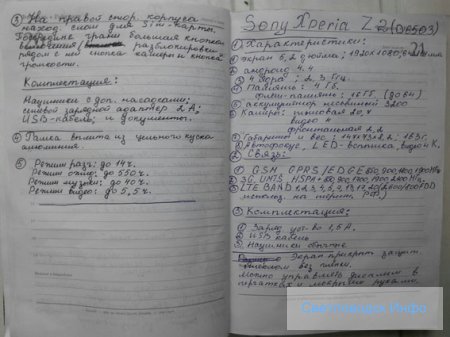 ③ На правой стор. корпуса
наход. слот для Sim-карты.
грани большая кнопка
разблокировки
рядом с ней кнопка камеры и кнопка
громкости.
Комплектация:
Наушники с доп. насадками;
сетевой зарядной адаптер 2 А;
USB-кабель; и документы.
④ Рамка вылита из цельного куска
алюминия.
⑤ Режим разг: до 14ч.
Режим ожид: до 550ч.
Режим музыки: до 40ч.
Режим видео: до 5,5ч.
Sony Xperia Z2 (D6503)
21
① Характеристики:
экран 5,2 дюйма; 1920х1080;
андроид 4.4
4 ядра; 2,3 Ггц
Память: 4 Гб.
флеш память: 16Гб (до 64)
аккумулятор несъёмный 3200
Камеры: тыловая 20,7
видео 4К
фронтальная 2,2
Габариты и вес:
Автофокус, LED-вспышка, видео 4К.
② Связь:
① GSM GPRS/EDGE 850, 900, 1800, 1900
② 3G UMTS HSPA+ 850, 900, 1700, 1900, 2100
③ LTE BAND
использ. на терит. РФ)
③ Комплектация:
① Заряд. уст-во 1,5 А.
② USB кабель
③ Наушники
Экран прикрыт защит.
без
можно управлять дисплеем в
перчатках и мокрыми руками.
Световодск Инфо